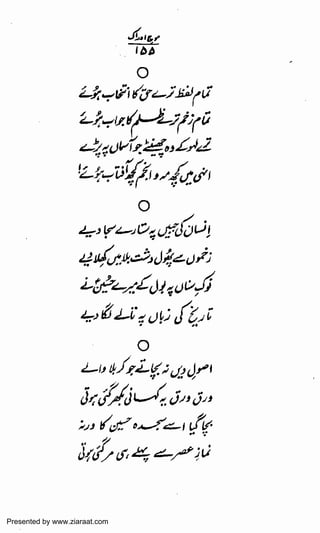 موجِ ادراک
۱۵۵
تمام لفظ ترے حق کا انتخاب ہوئے
تمام زخم ترے ظلم کا جواب ہوئے
ترے لہو کے وہ چھینٹے جو آسماں پہ پڑے
انہی میں کچھ مہ و انجم کچھ آفتاب ہوئے!
انسان کی جبیں پہ ستارے سجا دیے
زخموں سے پھول دشتِ بلا میں کھلا دیے
نوکِ سناں پہ بول کے میرے حسینؑ نے
تاریخ کی زباں پہ تالے لگا دیے
اصول دیں نہ بچاتے جو کربلا والے
ورق ورق یہ کہانی بکھر گئی ہوتی
بچا گیا اسے سجدہ حسین کا ورنہ
نمازِ عصر سے پہلے ہی مر گئی ہوتی
Presented by www.ziaraat.com